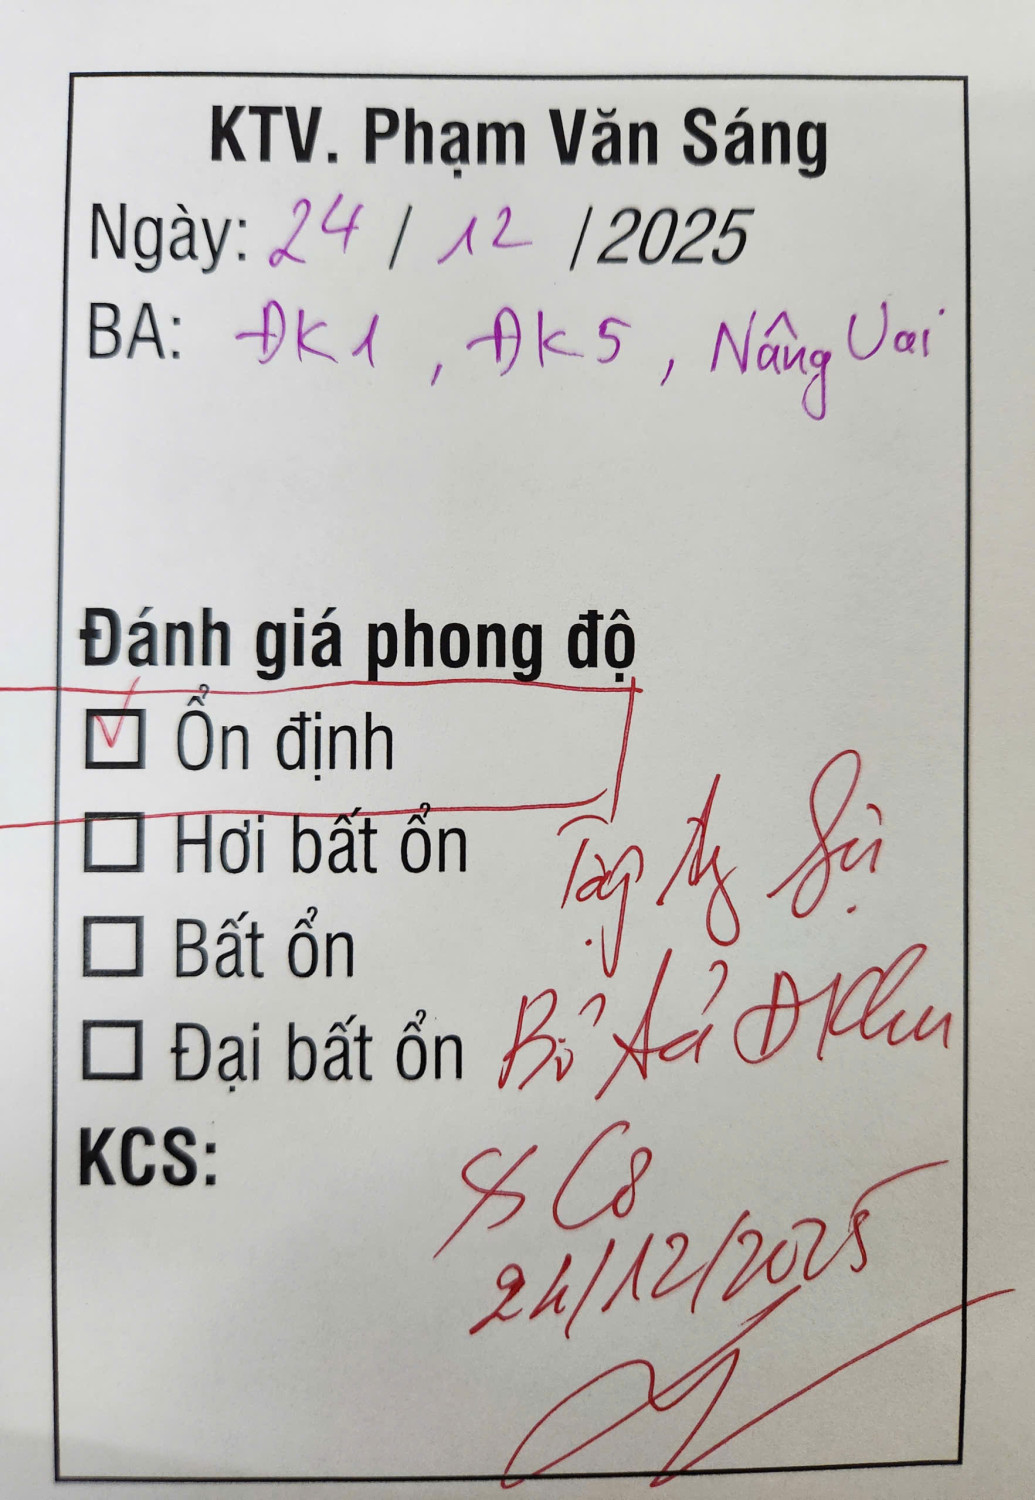 KTV. Phạm Văn Sáng
Ngày: 24 / 12 / 2025
BA: ĐK1, ĐK5, Nâng Vai
Đánh giá phong độ
Ổn định
Hơi bất ổn
Bất ổn
Đại bất ổn
KCS:
24/12/2025